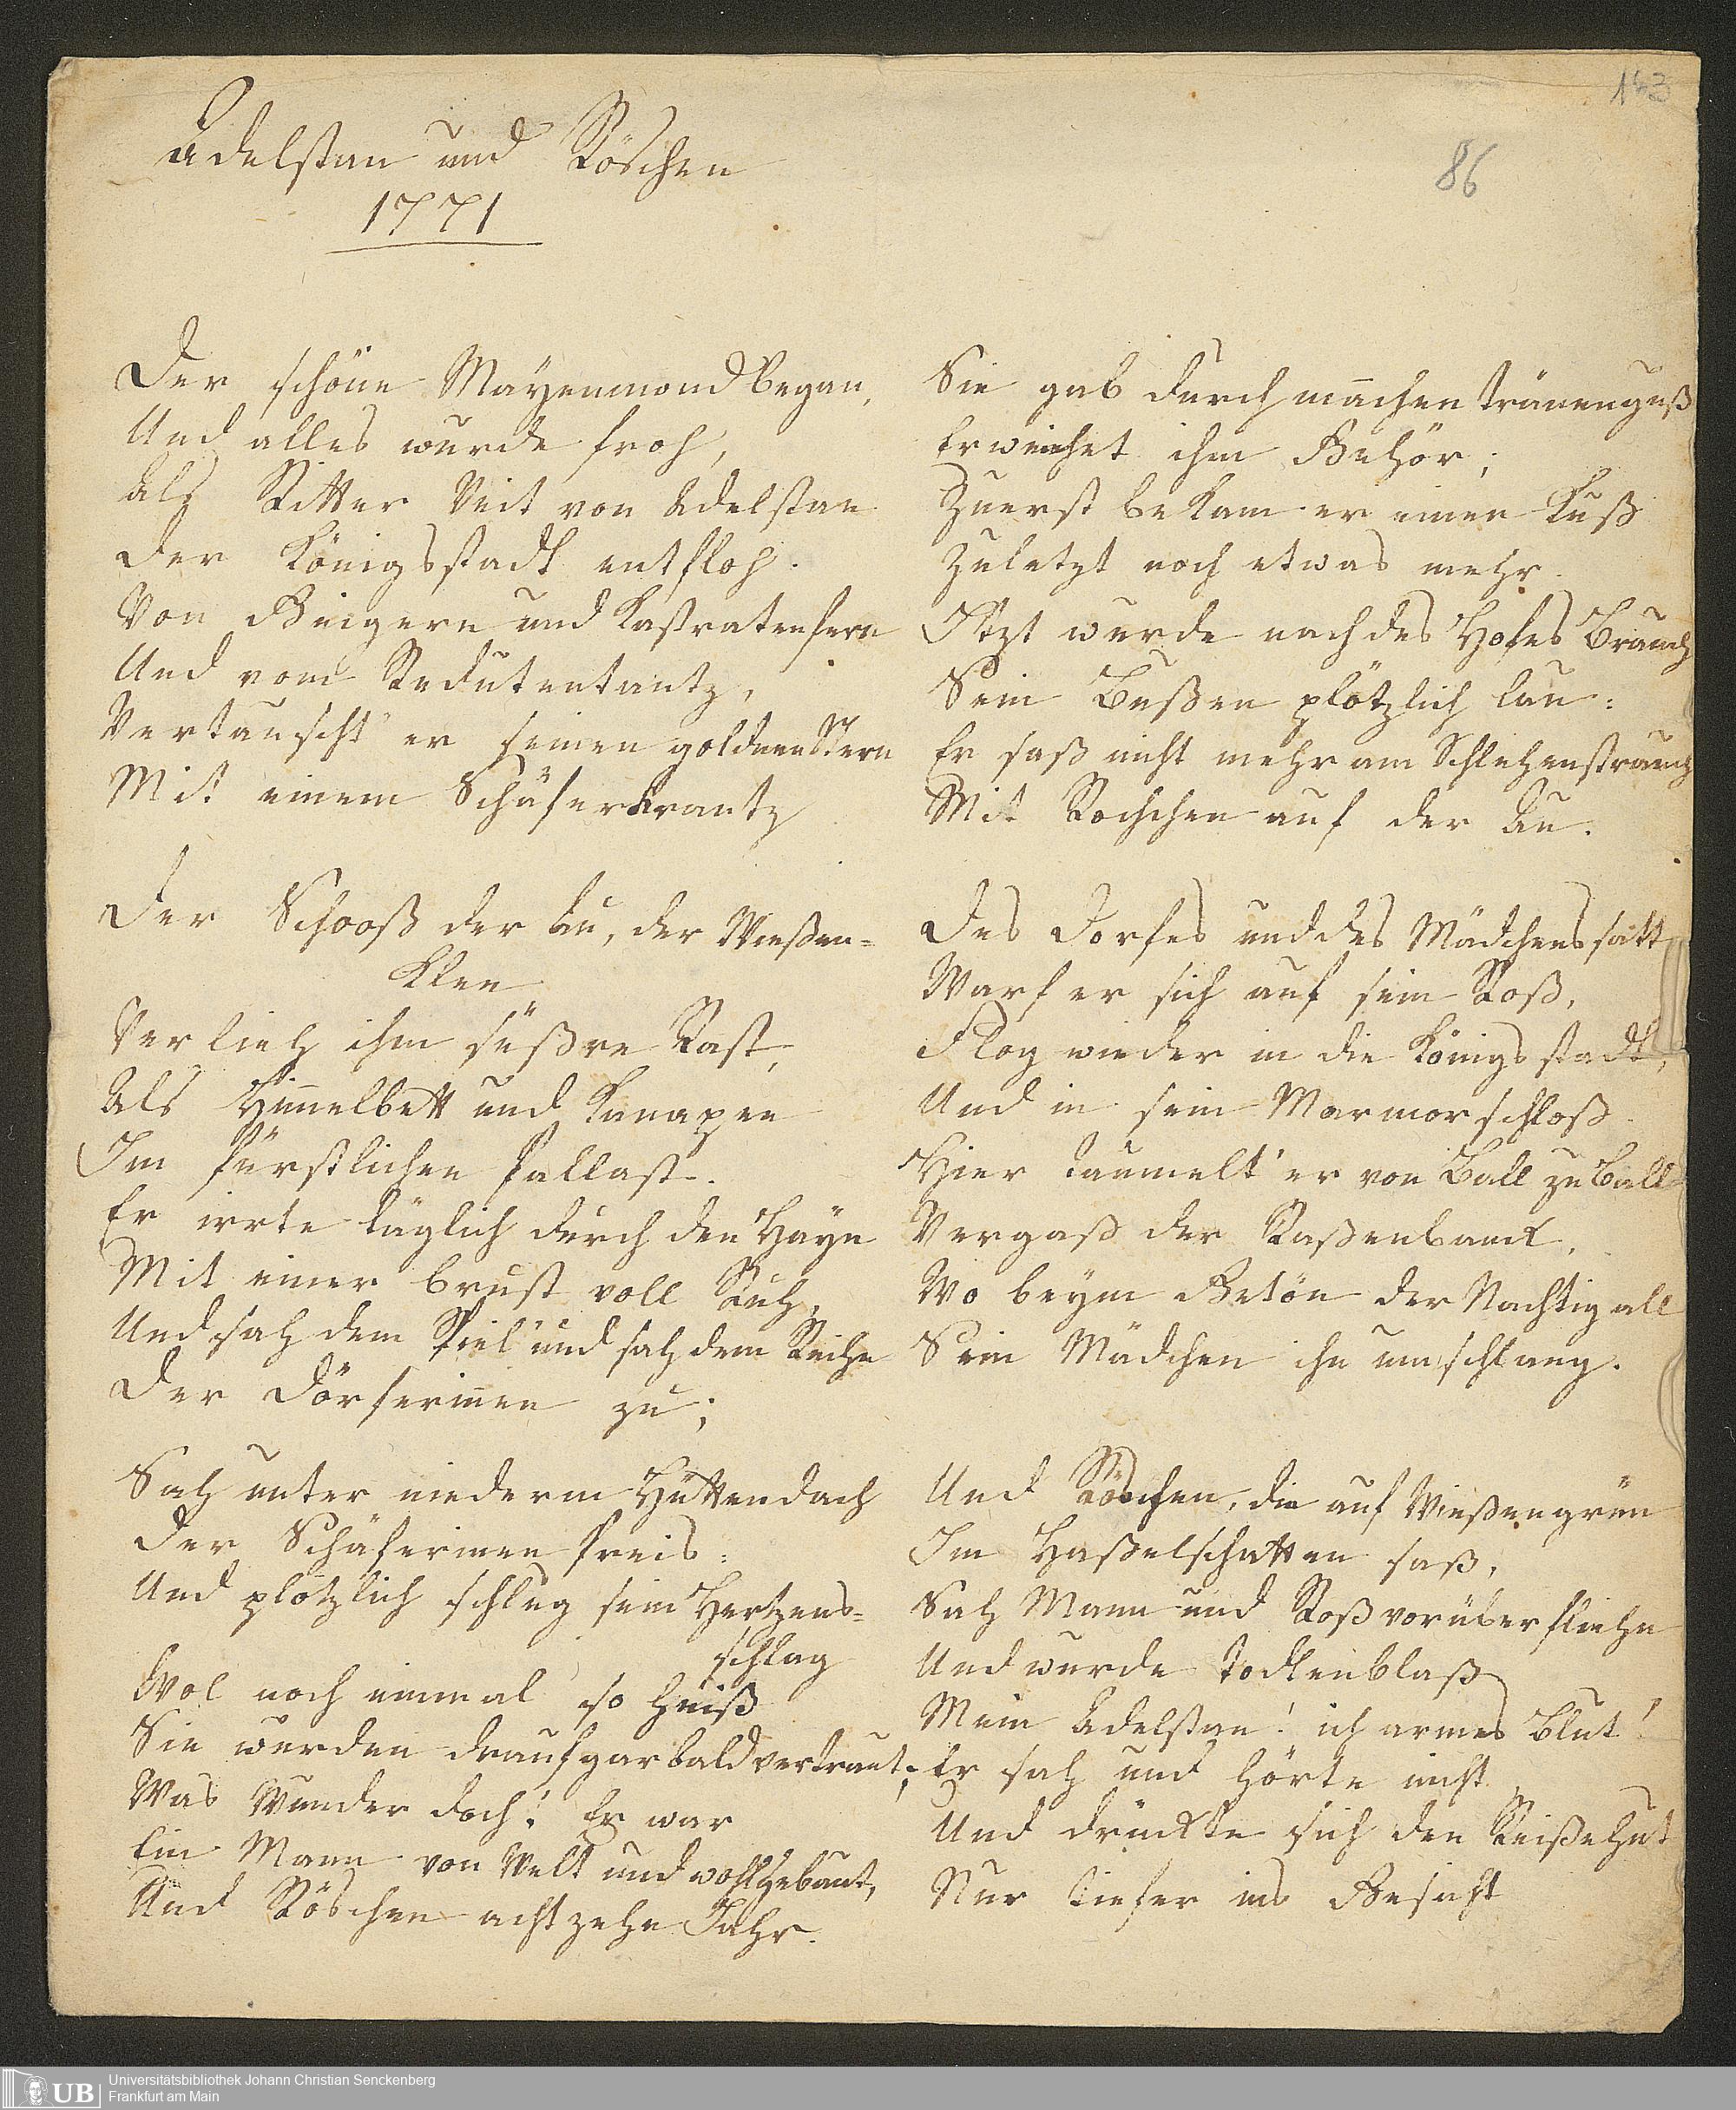 143
86
Adelstan und Röschen
1771
Der schöne Mayenmond began,
Und alles wurde froh,
Als Ritter Veit von Adelstan
Der Königsstadt entfloh.
Von Geigern und Kastraten fern
Und vom Redutentantz,
Vertauscht' er seinen goldnen Stern
Mit einem Schäferkrantz
Der Schooß der Au, der Wießen-
Klee
Verlieh ihm süßre Rast,
Als Him̄elbett und Kanapee
Im fürstlichen Pallast.
Er irrte täglich durch den Hayn
Mit einer Brust voll Ruh,
Und sah dem Spiel und sah dem Reihn
Der Dörferin̄en zu;
Sah unter niederm Hüttendach
Der Schäferinnen Preis:
Und plötzlich schlug sein Hertzens-
schlag
Wol noch einmal so heiß
Sie wurden drauf gar bald vertraut;
Was Wunder doch! Er war
Ein Mann von Welt und wohlgebaut,
Und Röschen achtzehn Jahr.
Sie gab durch man̄chen Tränenguß
Erweichet ihm Gehör;
Zuerst bekam er einen Kuß
Zuletzt noch etwas mehr.
Itzt wurde nach des Hofes Brauch
Sein Bußen plötzlich lau:
Er saß nicht mehr am Schlehenstrauch
Mit Röschen auf der Au.
Des Dorfes und des Mädchens satt
Warf er sich auf sein Roß,
Flog wieder in die Königsstadt,
Und in sein Marmorschloß.
Hier taumelt' er von Ball zu Ball
Vergaß der Raßenbank,
Wo beym Getön der Nachtigall
Sein Mädchen ihn umschlang.
Und Röschen, die auf Wießengrün
Im Haßelschatten saß,
Sah Mann und Roß vorüber fliehn
Und wurde Todtenblaß
Mein Adelstan! ich armes Blut!
Er sah und hörte nicht
Und drückte sich den Reißehut
Nur tiefer ins Gesicht
UB
Universitätsbibliothek Johann Christian Senckenberg
Frankfurt am Main